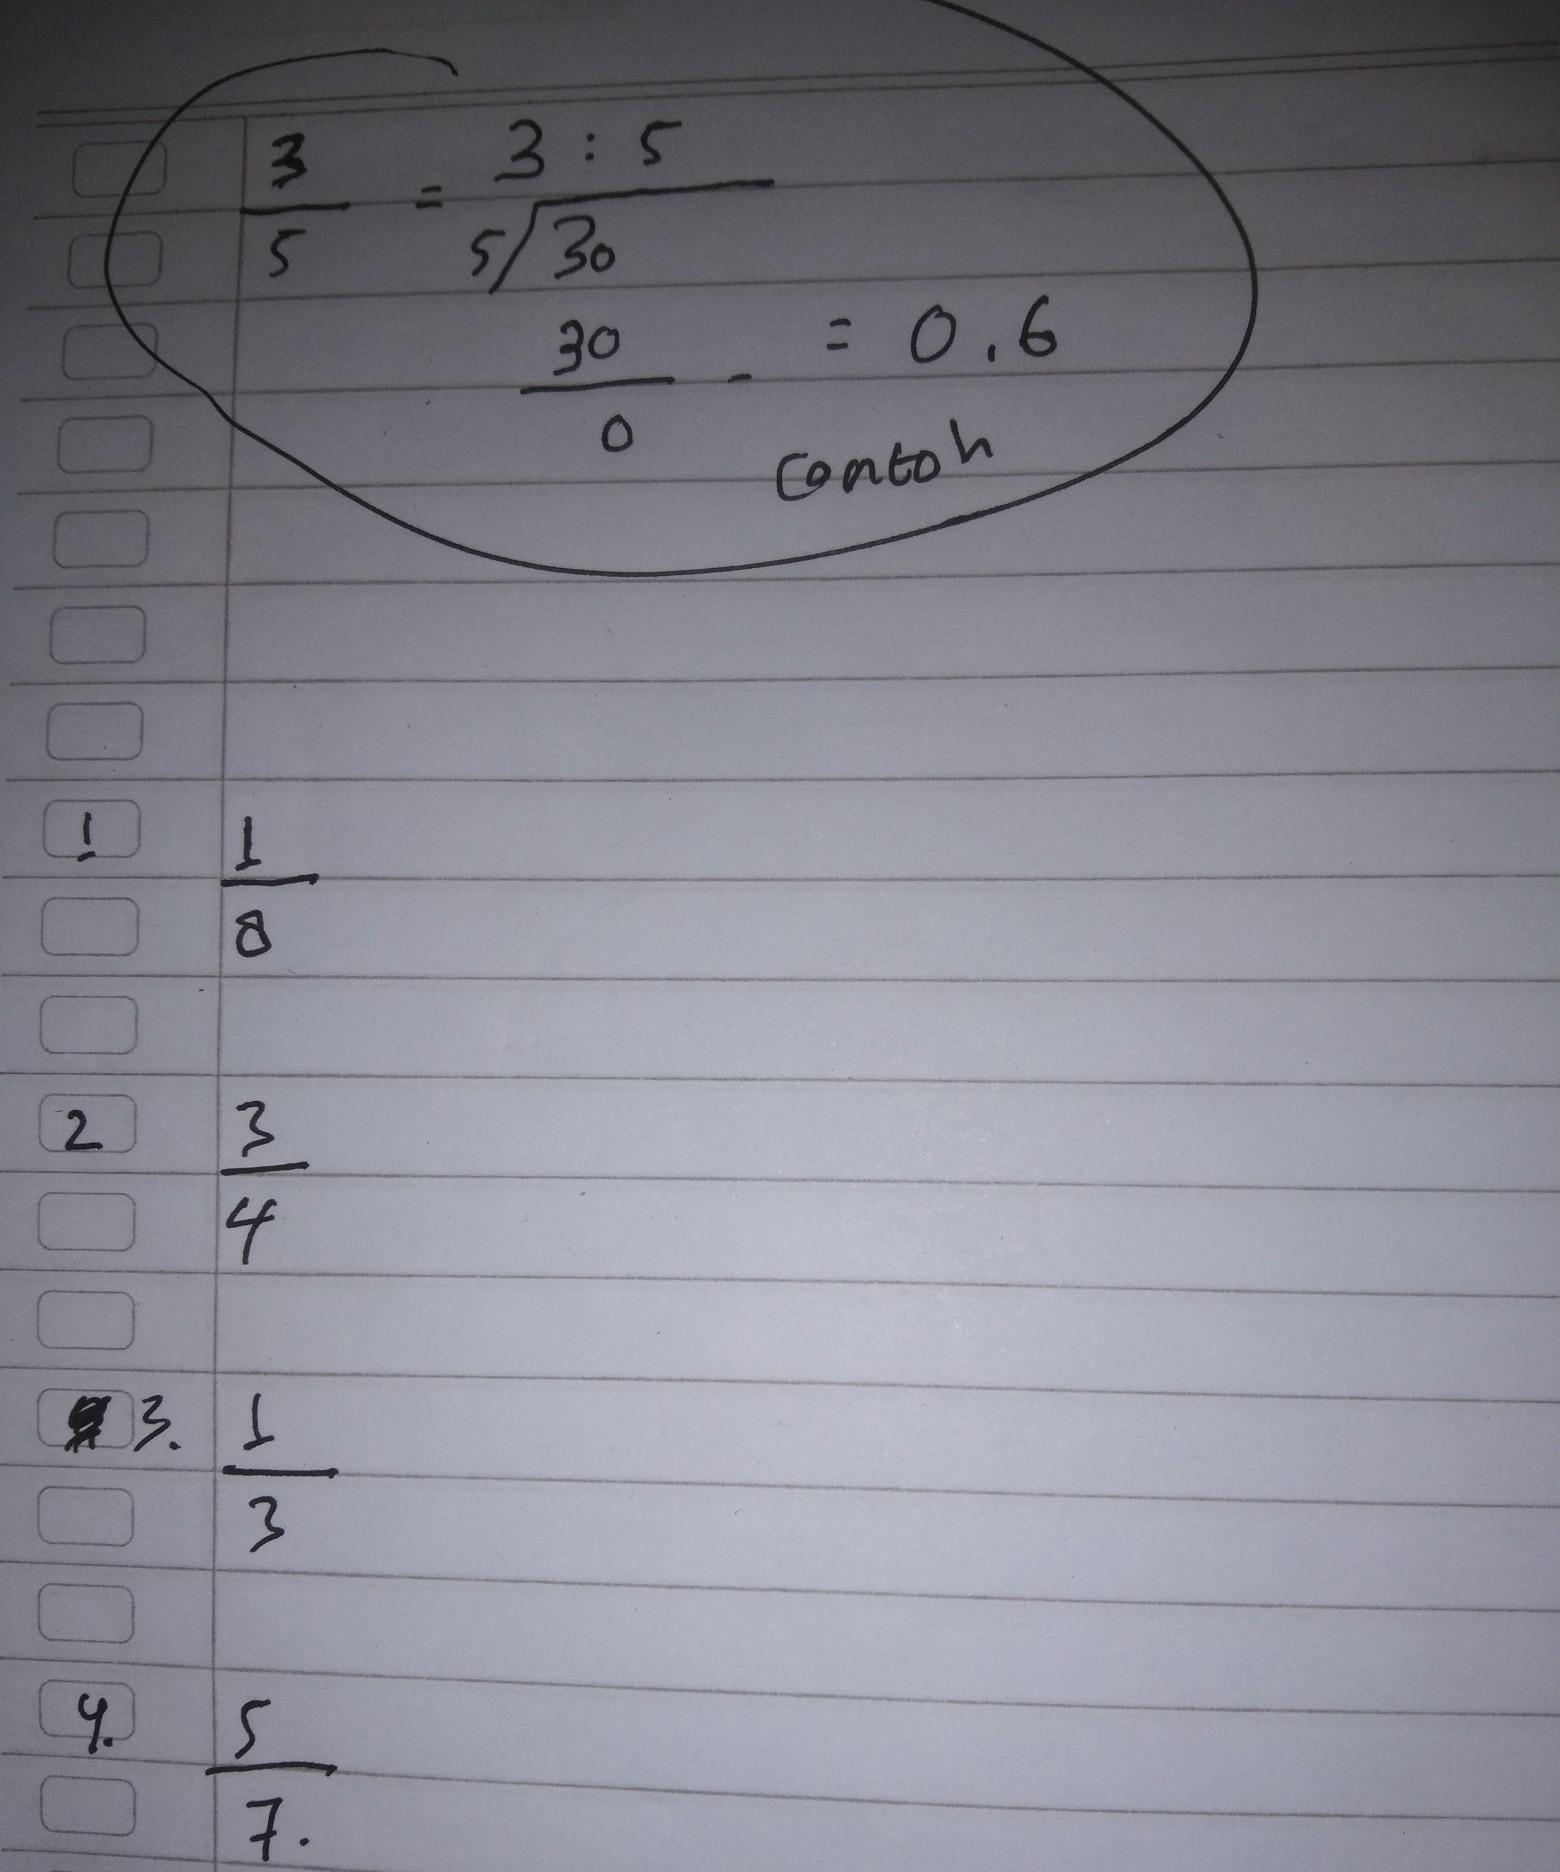 3/5 = 3 : 5
5/30
30
- = 0.6
0
Contoh
1 1/8
2 3/4
3. 1/3
4. 5/7.